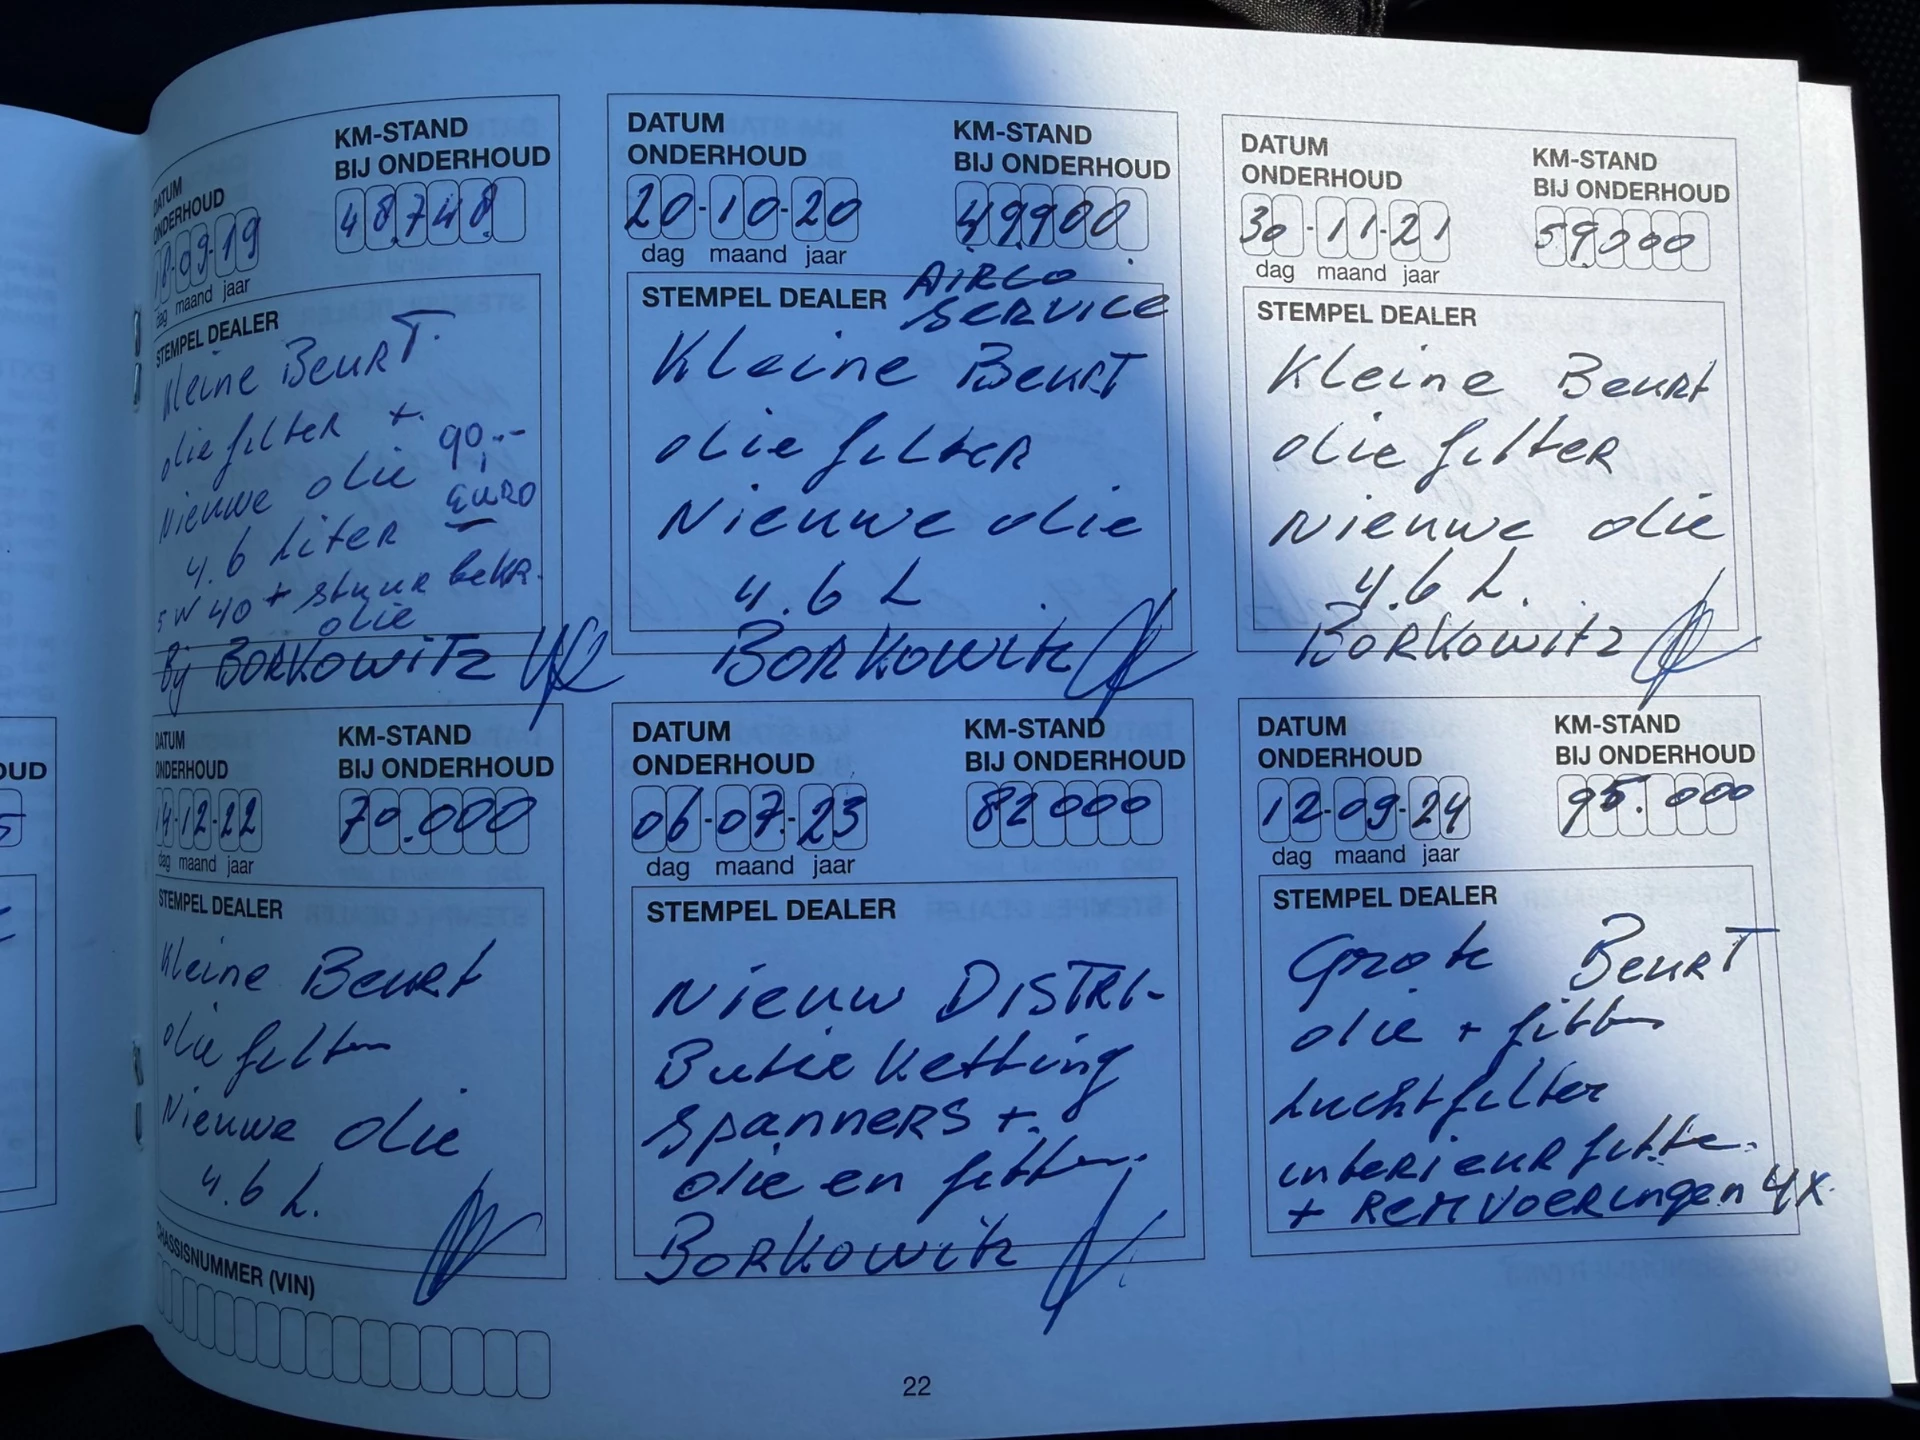 DATUM
ONDERHOUD
KM-STAND
BIJ ONDERHOUD
18-09-19
48.748.
dag maand jaar
STEMPEL DEALER
Kleine Beurt.
olie filter +
Nieuwe olie 90,--
4.6 Liter Euro
5W40 + stuur bekr.
olie
Bij BORKOWITZ
DATUM
ONDERHOUD
KM-STAND
BIJ ONDERHOUD
20-10-20
49900
dag maand jaar
AIRCO
STEMPEL DEALER SERVICE
Kleine Beurt
olie filter
Nieuwe olie
4.6 L
BORKOWITZ
DATUM
ONDERHOUD
KM-STAND
BIJ ONDERHOUD
30-11-21
59000
dag maand jaar
STEMPEL DEALER
Kleine Beurt
olie filter
Nieuwe olie
4.6 L.
BORKOWITZ
DATUM
ONDERHOUD
KM-STAND
BIJ ONDERHOUD
14-12-22
70.000
dag maand jaar
STEMPEL DEALER
Kleine Beurt
olie filter
Nieuwe olie
4.6 L.
CHASSISNUMMER (VIN)
DATUM
ONDERHOUD
KM-STAND
BIJ ONDERHOUD
06-07-23
82000
dag maand jaar
STEMPEL DEALER
Nieuw DISTRI-
Butie Ketting
spanners +
olie en filter.
BORKOWITZ
DATUM
ONDERHOUD
KM-STAND
BIJ ONDERHOUD
12-09-24
95.000
dag maand jaar
STEMPEL DEALER
Grote Beurt
olie + filter
Luchtfilter
interieur filter.
+ Remvoeringen 4x.
22
OUD
5